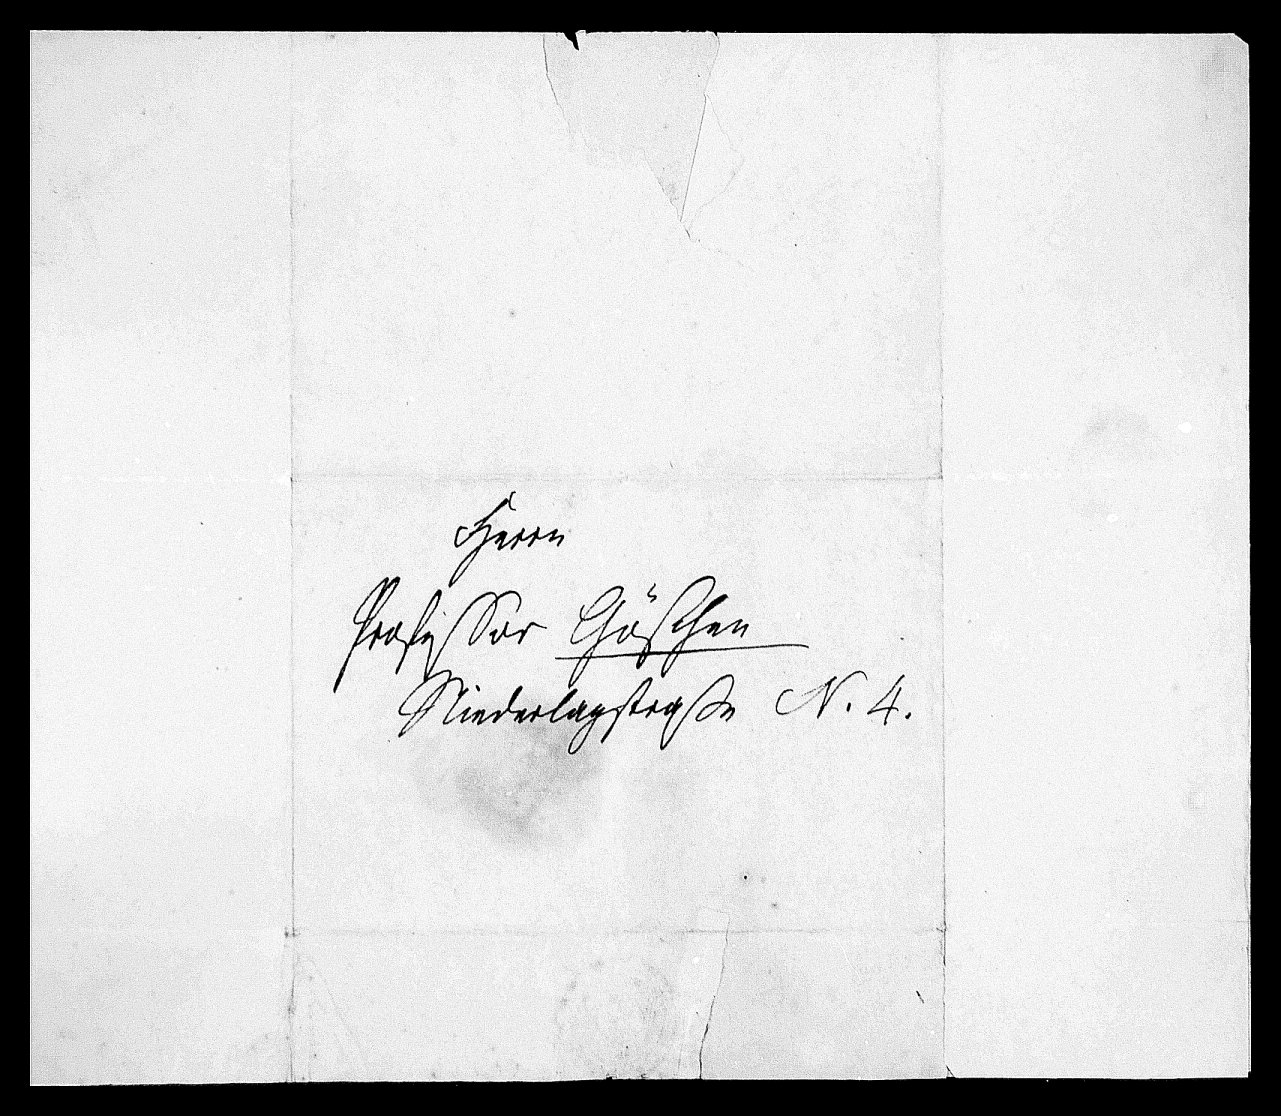 Herrn
Professor Göschen
Niederlagstraße N. 4.